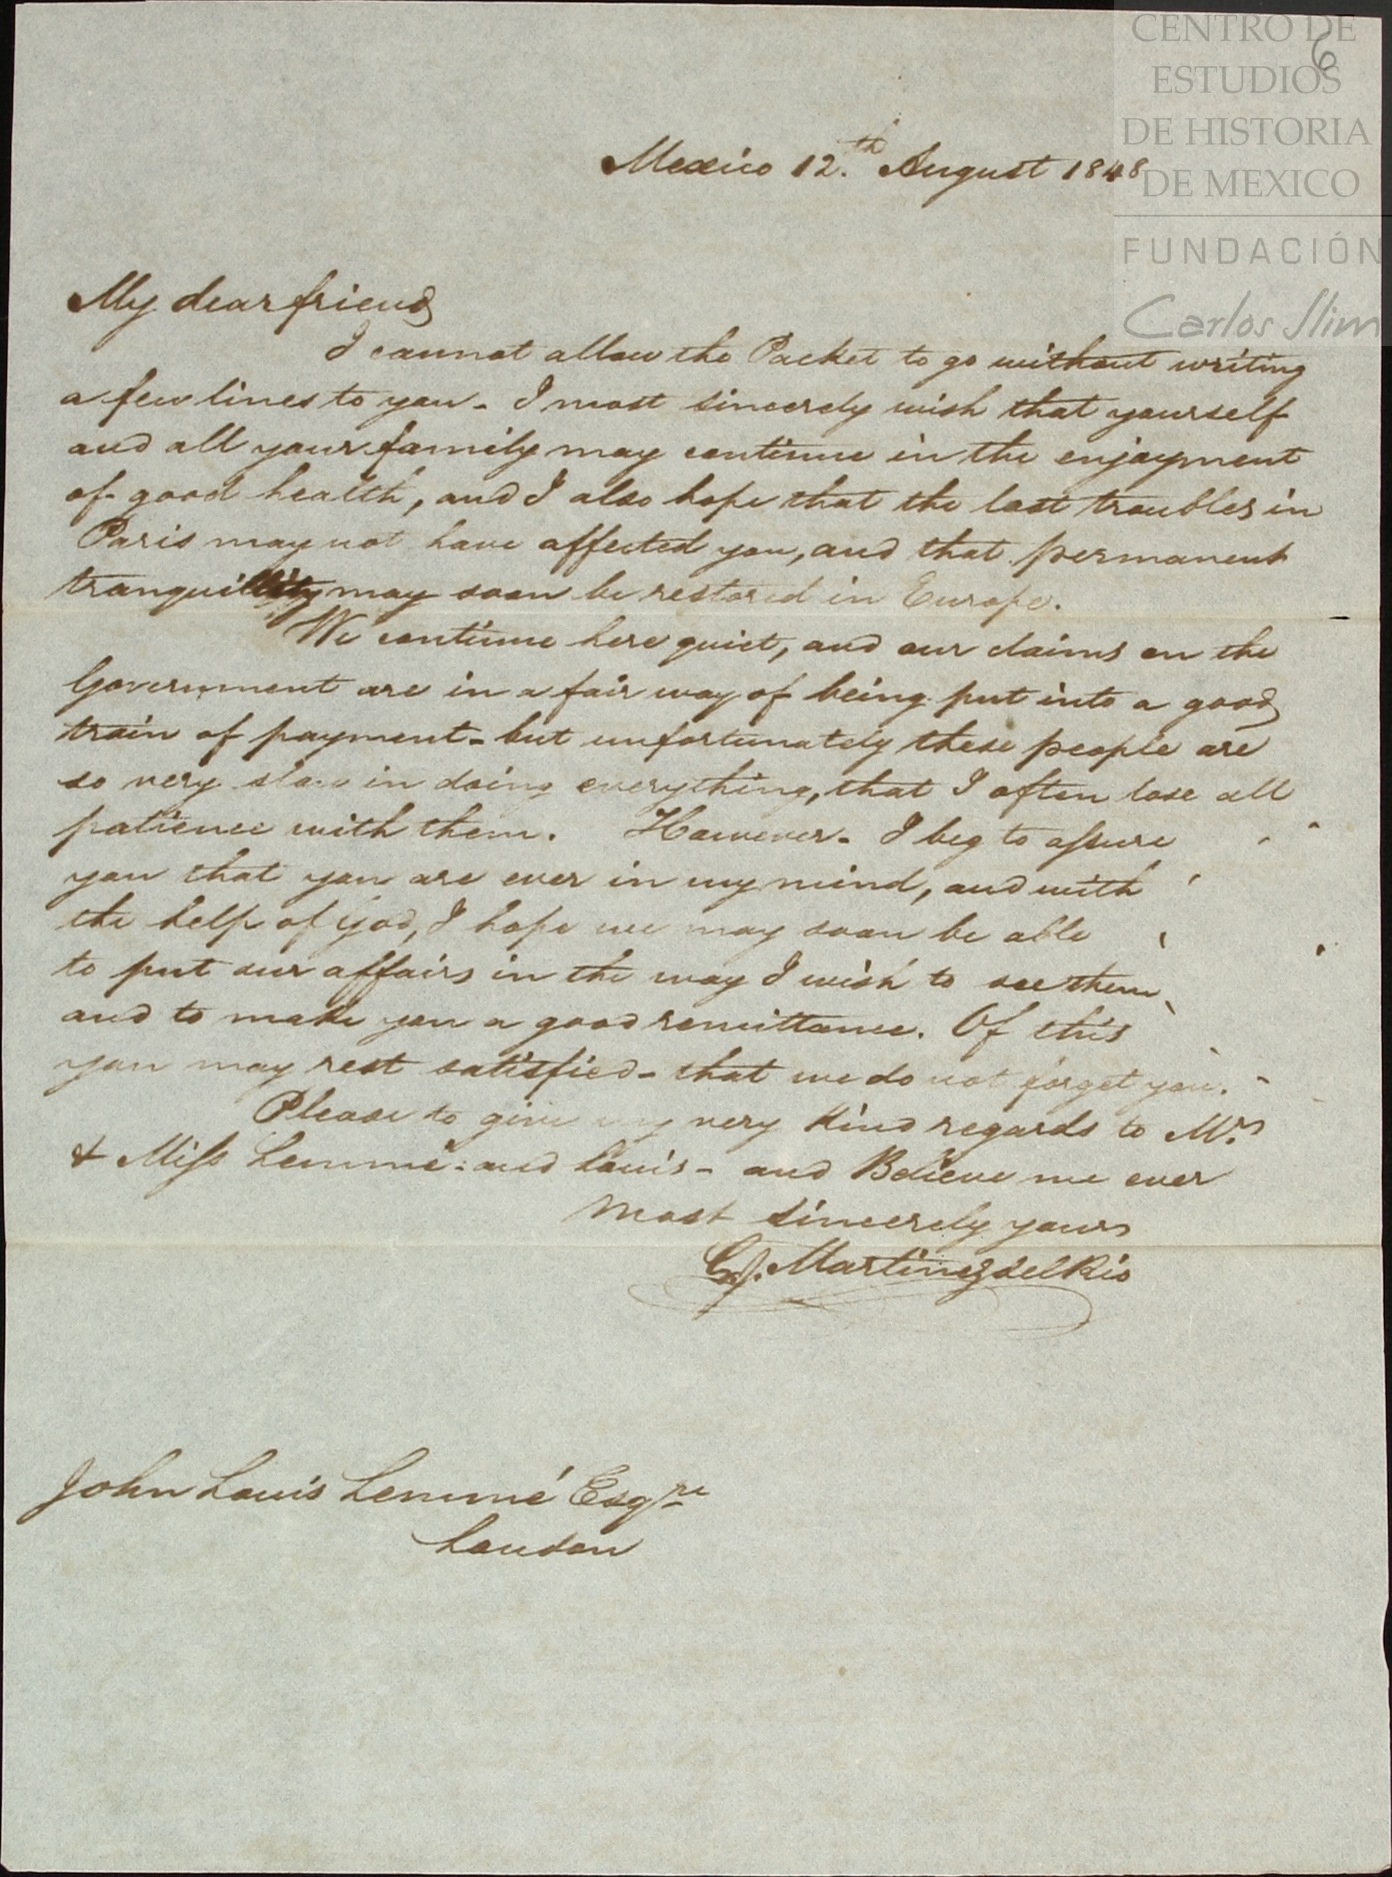 CENTRO DE
ESTUDIOS
DE HISTORIA
DE MEXICO
FUNDACIÓN
Carlos Slim
6
Mexico 12.th August 1848
My dear friend
I cannot allow the Packet to go without writing
a few lines to you - I most sincerely wish that yourself
and all your family may continue in the enjoyment
of good health, and I also hope that the last troubles in
Paris may not have affected you, and that permanent
tranquillity may soon be restored in Europe.
We continue here quiet, and our claims on the
Government are in a fair way of being put into a good
train of payment - but unfortunately these people are
so very slow in doing everything, that I often lose all
patience with them. However - I beg to assure
you that you are ever in my mind, and with
the help of God, I hope we may soon be able
to put our affairs in the way I wish to see them,
and to make you a good remittance. Of this
you may rest satisfied - that we do not forget you. -
Please to give my very kind regards to Mrs
& Miss Lemmé: and Louis - and Believe me ever
most sincerely yours
G. Martinez del Rio
John Louis Lemmé Esqre
London